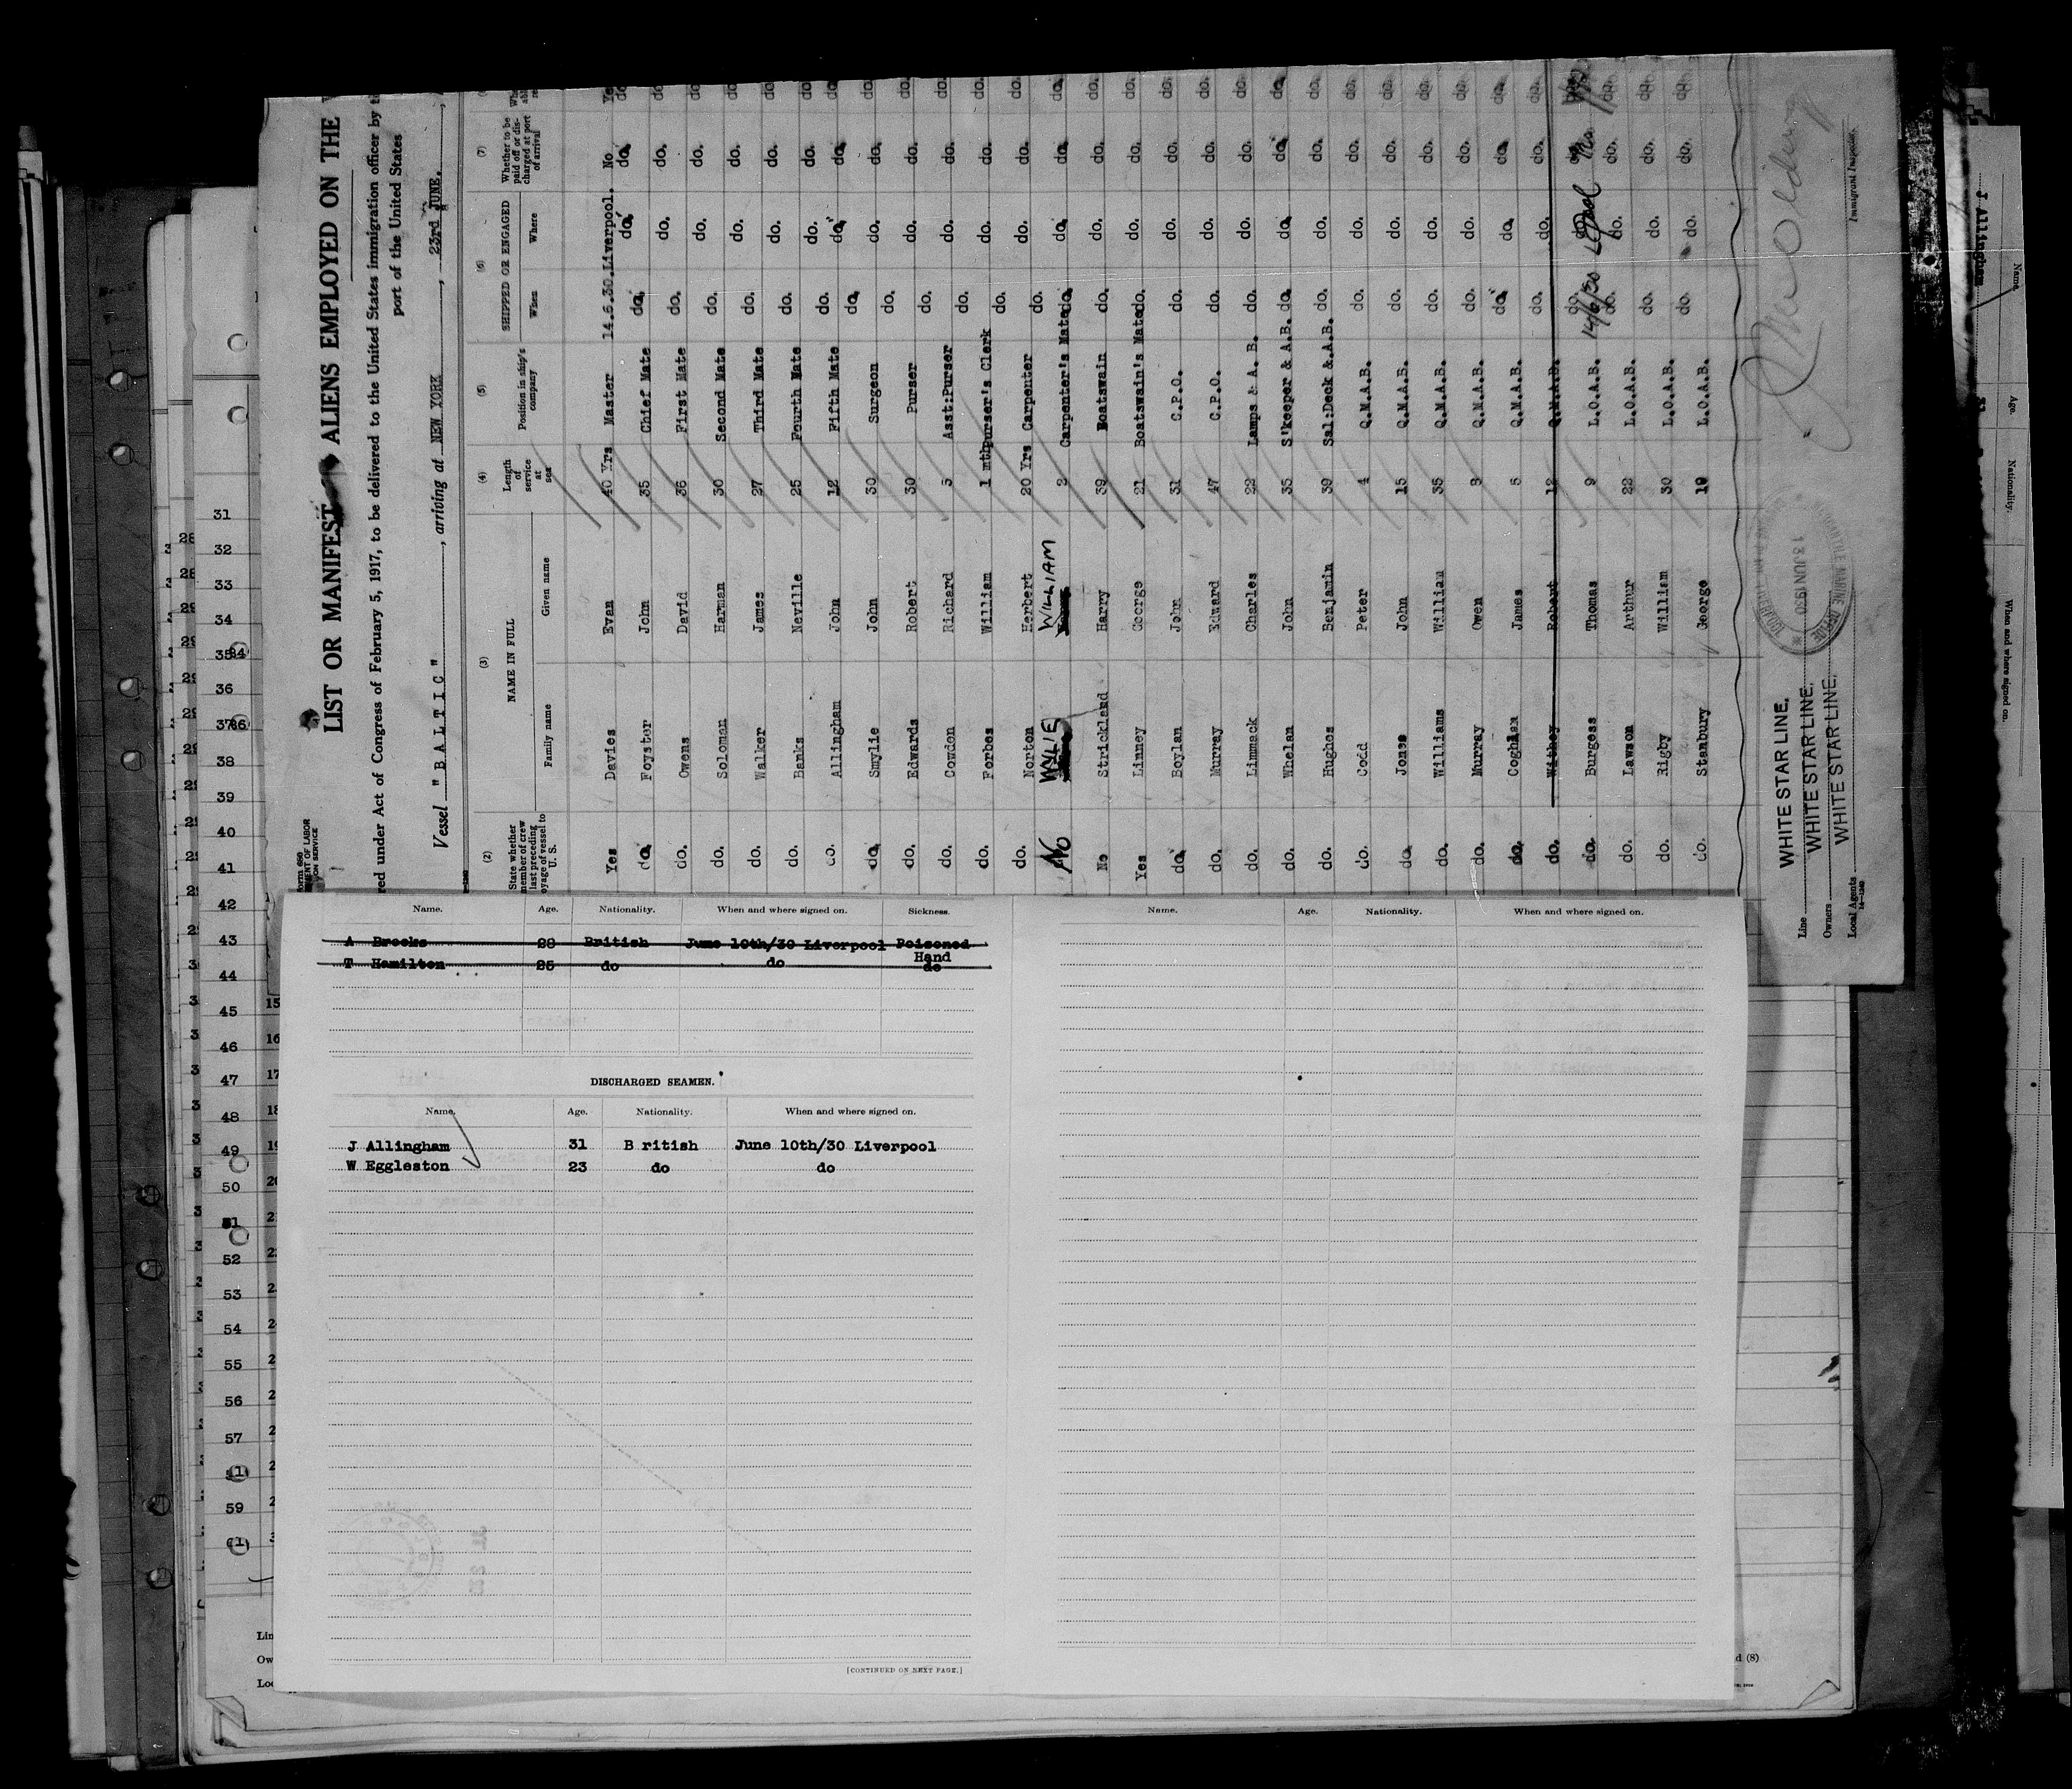 LIST OR MANIFEST ALIENS EMPLOYED ON THE
red under Act of Congress of February 5, 1917, to be delivered to the United States immigration officer by
port of the United States
Vessel "BALTIC", arriving at NEW YORK, 23rd JUNE.
(2) (3) (4) (5) (6) (7)
State whether member of crew last preceding voyage of vessel to U. S. NAME IN FULL Length of service at sea Position in ship's company SHIPPED OR ENGAGED Whether to be paid off or discharged at port of arrival
Family name Given name When Where
Yes Davies Evan 40 Yrs Master 14.6.30. Liverpool. No
do. Foyster John 35 Chief Mate do. do. do. do.
do. Owens David 36 First Mate do. do. do. do.
do. Soloman Harman 30 Second Mate do. do. do. do.
do. Walker James 27 Third Mate do. do. do. do.
do. Banks Neville 25 Fourth Mate do. do. do. do.
do. Allingham John 12 Fifth Mate do. do. do. do.
do. Smylie John 30 Surgeon do. do. do. do.
do. Edwards Robert 30 Purser do. do. do. do.
do. Cowdon Richard 5 Asst:Purser do. do. do. do.
do. Forbes William 1 mth Purser's Clerk do. do. do. do.
do. Norton Herbert 20 Yrs Carpenter do. do. do. do.
No WYLIE WILLIAM 2 Carpenter's Mate do. do. do. do.
No Strickland Harry 39 Boatswain do. do. do. do.
Yes Linney George 21 Boatswain's Mate do. do. do. do.
do. Boylan John 31 C.P.O. do. do. do. do.
do. Murray Edward 47 C.P.O. do. do. do. do.
do. Limmack Charles 22 Lamps & A. B. do. do. do. do.
do. Whelan John 35 S'keeper & A.B. do. do. do. do.
do. Hughes Benjamin 39 Sal:Deck & A.B. do. do. do. do.
do. Codd Peter 4 Q.M.A.B. do. do. do. do.
do. Jones John 15 Q.M.A.B. do. do. do. do.
do. Williams William 35 Q.M.A.B. do. do. do. do.
do. Murray Owen 3 Q.M.A.B. do. do. do. do.
do. Coghlan James 5 Q.M.A.B. do. do. do. do.
do. Withey Robert 12 Q.M.A.B. do. do. do.
do. Burgess Thomas 9 L.O.A.B. 14/6/30 L'pool No
do. Lawson Arthur 22 L.O.A.B. do. do. do. do.
do. Rigby William 30 L.O.A.B. do. do. do. do.
do. Stanbury George 19 L.O.A.B. do. do. do. do.
Line WHITE STAR LINE,
Owners WHITE STAR LINE,
Local Agents WHITE STAR LINE,
13 JUN 1930
Immigrant Inspector.
Name. Age. Nationality. When and where signed on. Sickness.
A Brooks 28 British June 10th/30 Liverpool Poisoned Hand
T Hamilton 25 do do do
DISCHARGED SEAMEN.
Name. Age. Nationality. When and where signed on.
J Allingham 31 B ritish June 10th/30 Liverpool
W Eggleston 23 do do
[CONTINUED ON NEXT PAGE.]
Name. Age. Nationality. When and where signed on.
31
32
33
34
35
36
37
38
39
40
41
42
43
44
45
46
47
48
49
50
51
52
53
54
55
56
57
59
61
J Allingham
Name. Age. Nationality. When and where signed on.